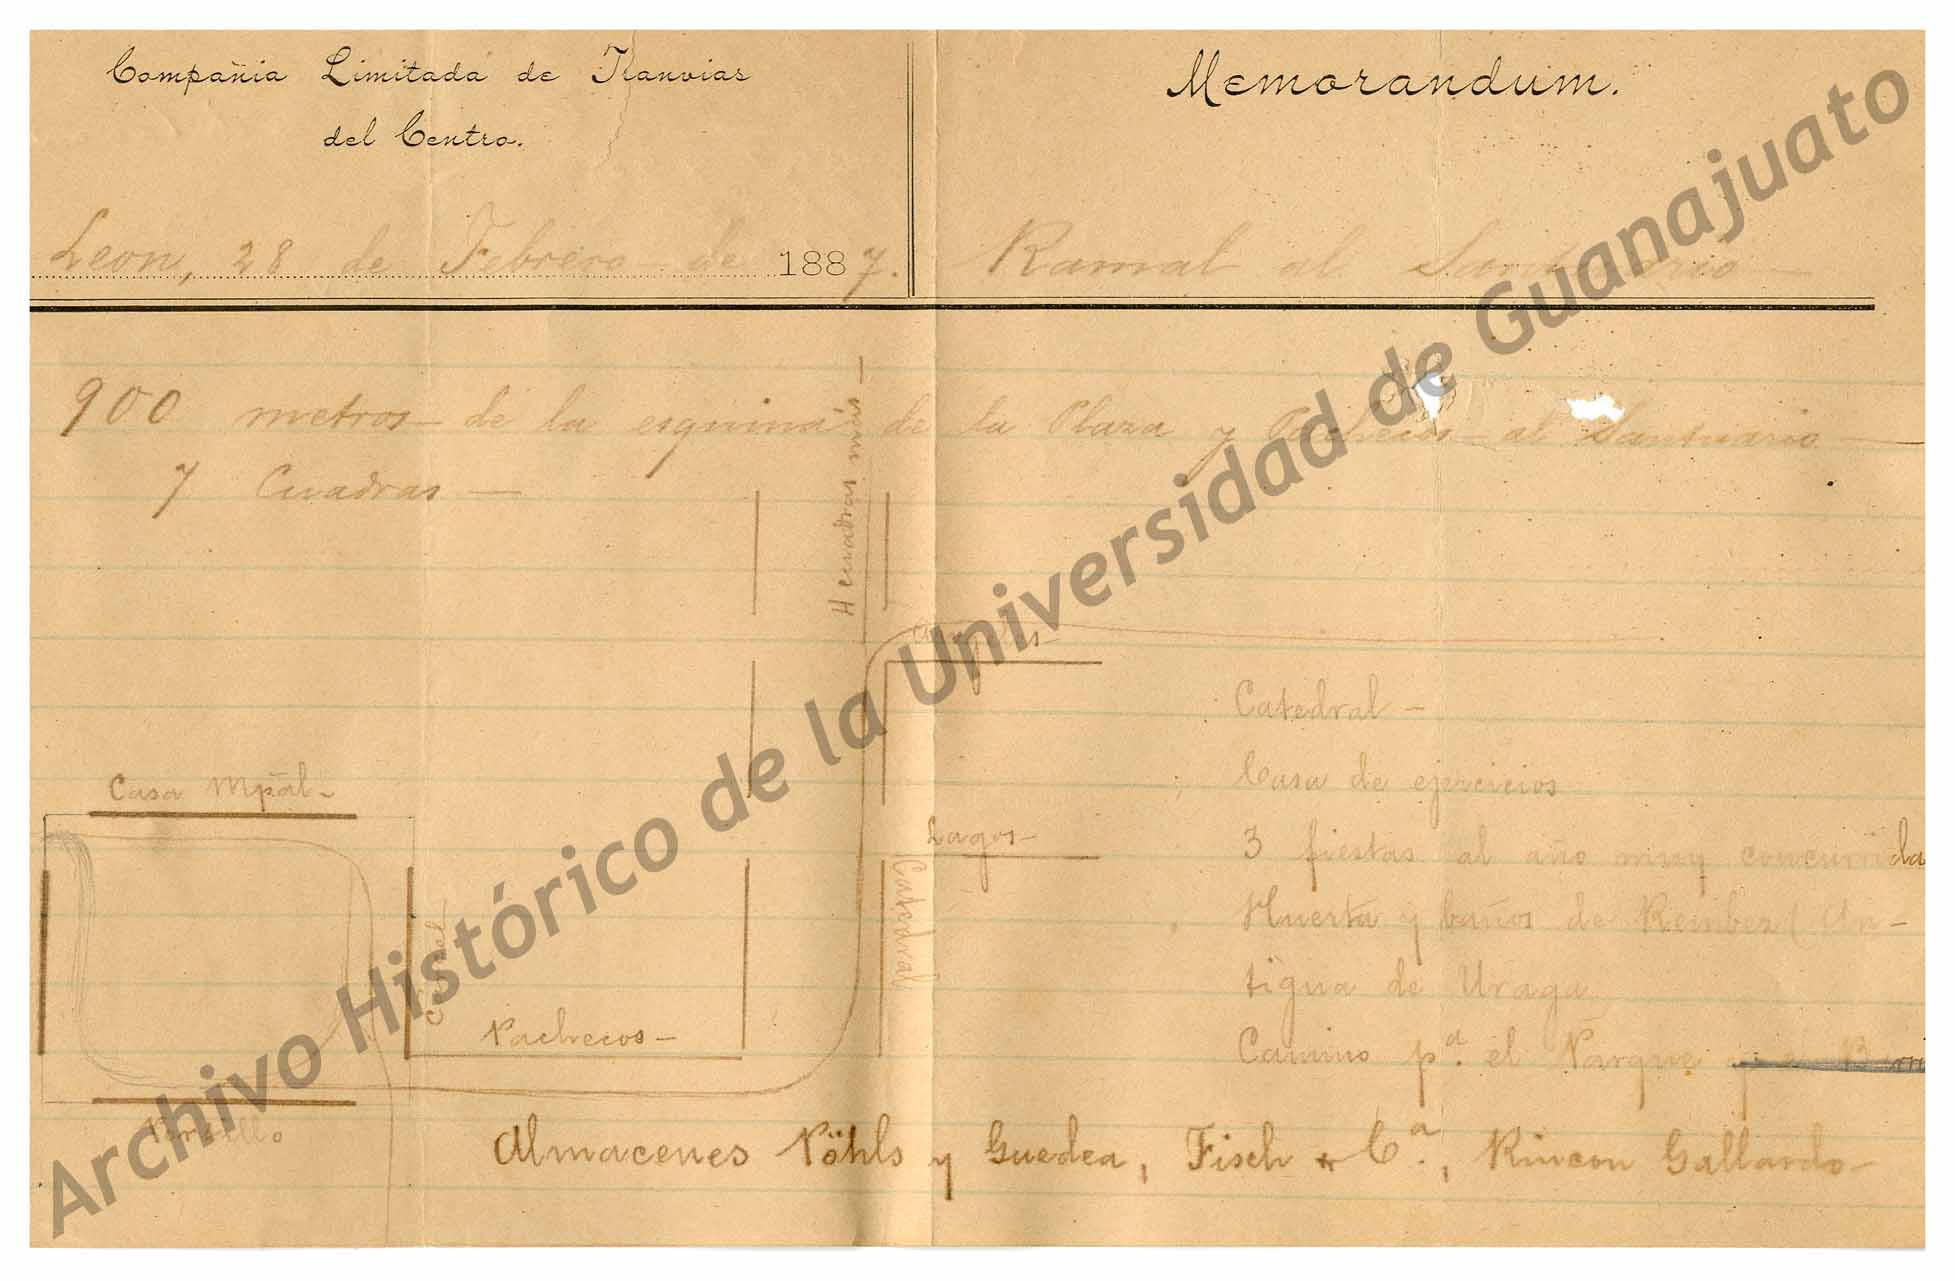 Compañia Limitada de Tranvias
del Centro.
Memorandum.
Leon, 28 de Febrero de 1887.
Ramal al Santuario
900 metros de la esquina de la Plaza y Pachecos al Santuario
7 Cuadras
4 cuadras más
Catedral
Casa de ejercicios
Casa Mpal
Lagos
3 fiestas al año muy concurrida
Catedral
Huerta y baños de Rembez (An-
tigua de Uraga
Pachecos
Camino pª. el Parque
Portillo
Almacenes Pöhls y Guedea, Fisch & Cª., Rincon Gallardo
Archivo Histórico de la Universidad de Guanajuato